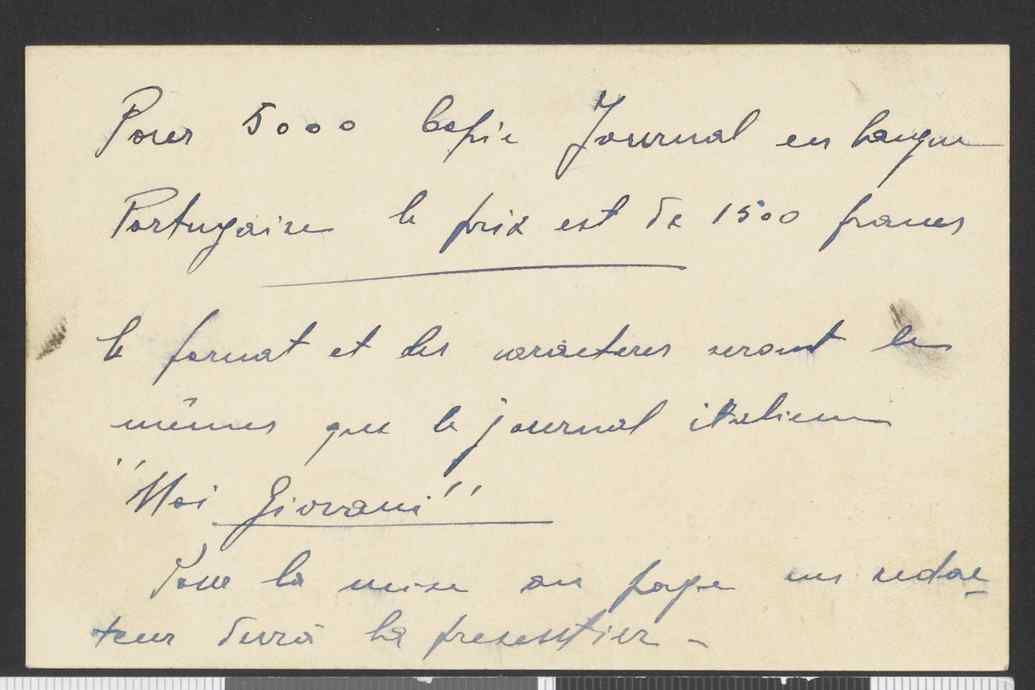 Pour 5000 Copie Journal en langue
Portugaise le prix est de 1500 francs
le format et les caracteres seront les
mêmes que le journal italien
"Noi Giovani"
Pour la mise en page un redac-
teur devrà la